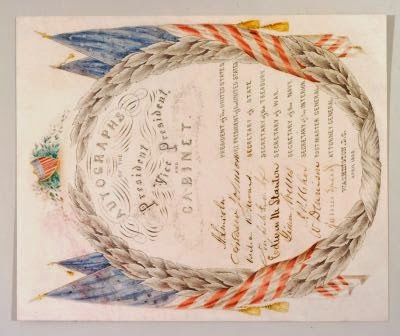 AUTOGRAPHS
OF THE
President
Vice President
AND
CABINET.
A Lincoln PRESIDENT of the UNITED STATES.
Andrew Johnson VICE PRESIDENT of the UNITED STATES.
SECRETARY OF STATE.
SECRETARY OF THE TREASURY.
Edwin M Stanton SECRETARY OF WAR.
Gideon Welles SECRETARY OF THE NAVY.
Usher SECRETARY OF THE INTERIOR.
W Dennison POSTMASTER GENERAL.
James Speed ATTORNEY GENERAL.
WASHINGTON, D.C.
APRIL 1865.